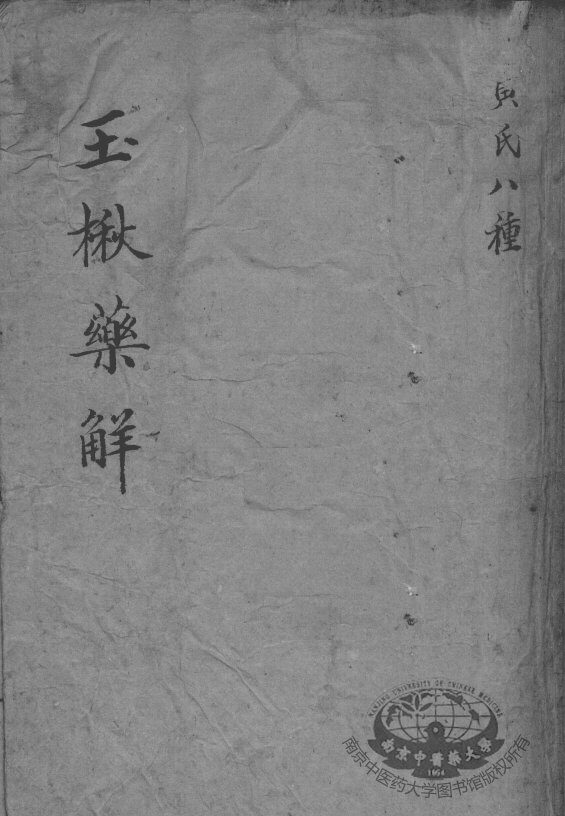 黄氏八種
玉楸藥解
NANJING UNIVERSITY OF CHINESE MEDICINE
南京中醫藥大學
1954
南京中医药大学图书馆版权所有